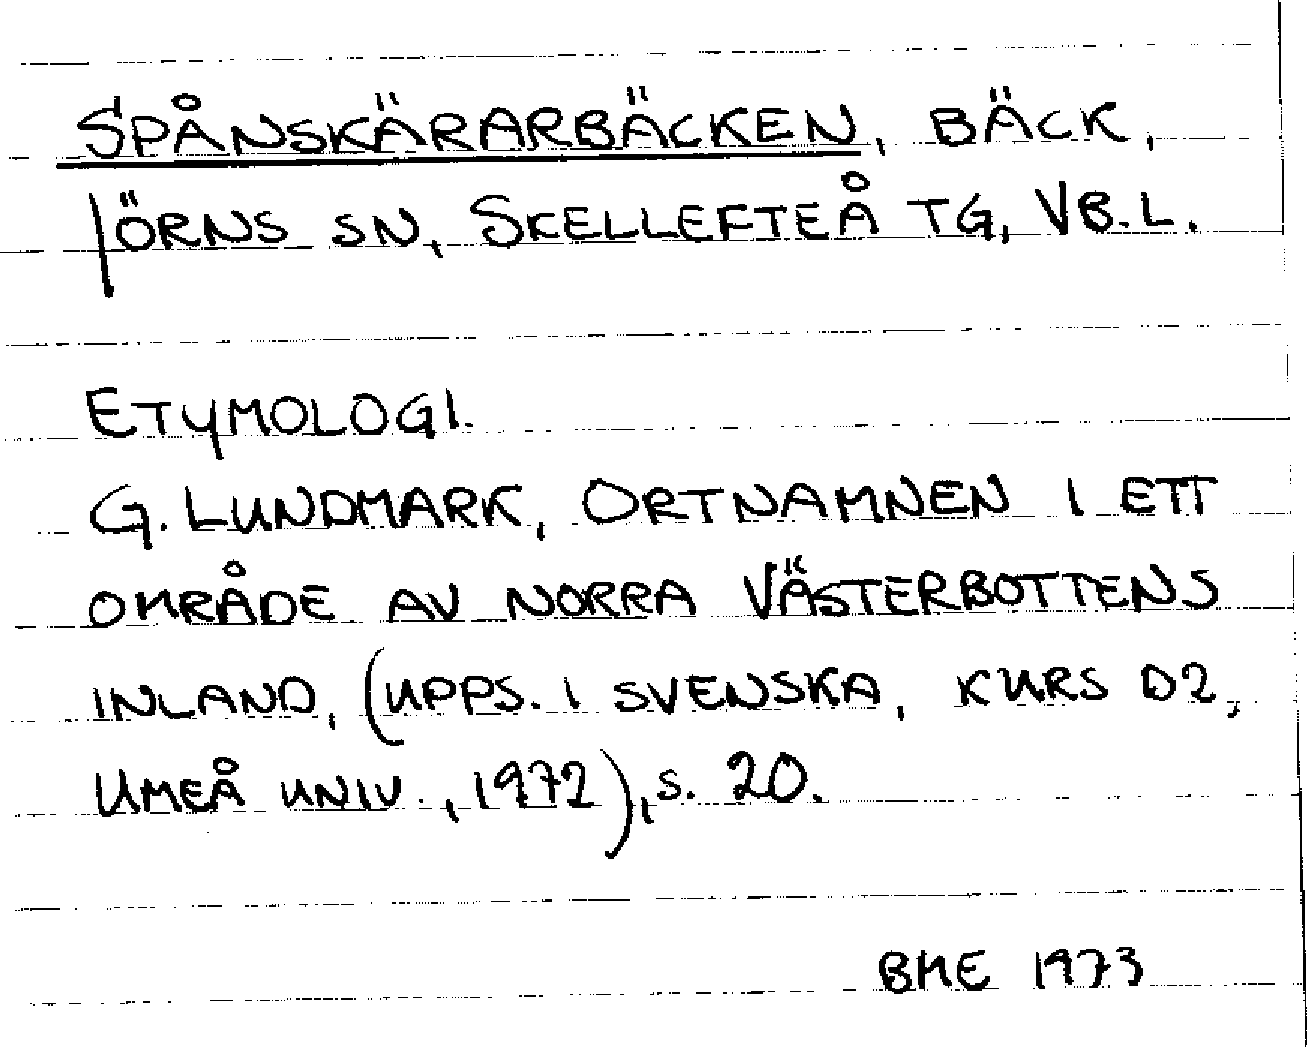 SPÅNSKÄRARBÄCKEN, BÄCK,
JÖRNS SN, SKELLEFTEÅ TG, VB.L.
ETYMOLOGI.
G. LUNDMARK, ORTNAMNEN I ETT
OMRÅDE AV NORRA VÄSTERBOTTENS
INLAND, (UPPS. I SVENSKA, KURS D2,
UMEÅ UNIV., 1972), S. 20.
BME 1973